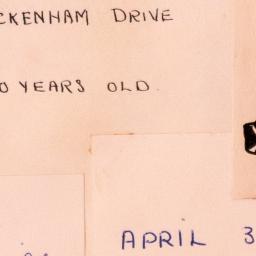 CKENHAM DRIVE
0 YEARS OLD.
APRIL 3